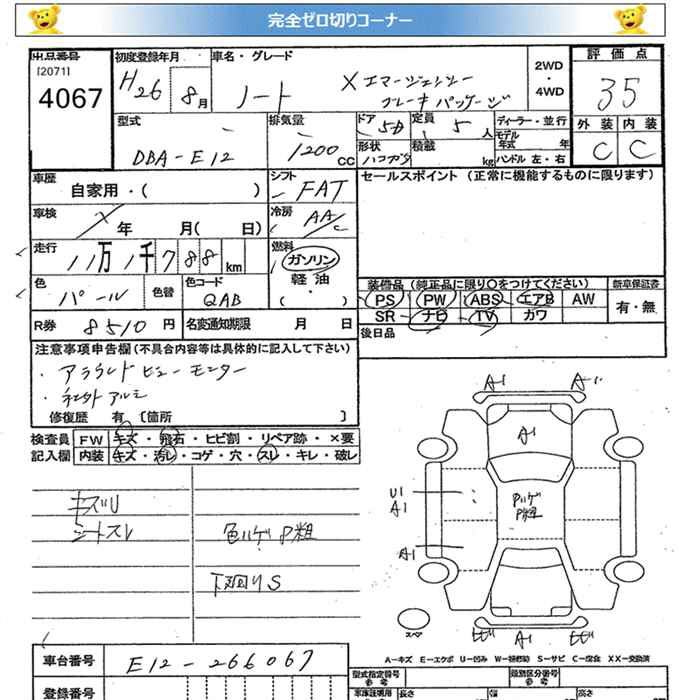 完全ゼロ切りコーナー
出品番号 初度登録年月 車名・グレード 2WD・4WD 評価点
[2071]
4067 H26 8月 ノート X エマージェンシー 35
ブレーキパッケージ
型式 排気量 ドア 定員 ディーラー・並行 外装 内装
DBA-E12 1200cc 5D 5人 モデル年式 年 C C
形状 積載 kg ハンドル 左・右
車歴 シフト セールスポイント (正常に機能するものに限ります)
自家用・( ) FAT
車検 年 月( 日) 冷房 AAC
走行 11万1千788km 燃料 ガソリン
軽油
・( )
色 パール 色替 色コード QAB 装備品(純正品に限り○をつけてください) 新車保証書
PS PW ABS エアB AW 有・無
SR ナビ TV カワ
R券 8510円 名変通知期限 月 日 後日品
注意事項申告欄(不具合内容等は具体的に記入して下さい)
・アラウンドビューモニター
・社外アルミ
修復歴 有 〔箇所 〕
検査員 FW キズ・飛石・ヒビ割・リペア跡・×要
記入欄 内装 キズ・汚レ・コゲ・穴・スレ・キレ・破レ
キズU
シートスレ 色ハゲP粗
下廻りS
A1 A1
A1
U1
A1
Pハゲ
P粗
A1
スペア A1
A-キズ E-エクボ U-凹み W-補修跡 S-サビ C-腐食 XX-交換済
車台番号 E12-266067 型式指定番号 参考 類別区分番号 参考
登録番号 車庫証明用 参考 長さ 幅 高さ